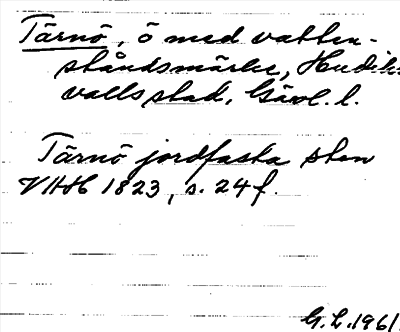 Tärnö, ö med vatten-
ståndsmärke, Hudiks-
valls stad, Gävl. l.
Tärnö jordfasta sten
VAH 1823, s. 24 f.
G. L. 1961.